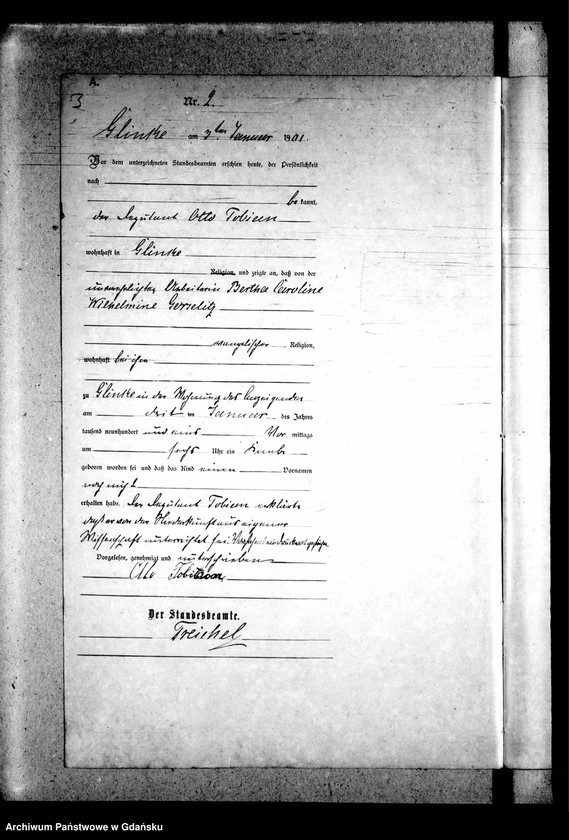 A.
3
Nr. 2.
Glinke am 3ten Januar 1901.
Vor dem unterzeichneten Standesbeamten erschien heute, der Persönlichkeit
nach
bekannt,
der Deputant Otto Tobien
wohnhaft in Glinke
Religion, und zeigte an, daß von der
unverehelichten Arbeiterin Bertha Caroline
Wilhelmine Gerselitz
evangelischer Religion,
wohnhaft bei ihm
zu Glinke in der Wohnung des Anzeigenden
am drit ten Januar des Jahres
tausend neunhundert und eins Vor mittags
um sechs Uhr ein Knabe
geboren worden sei und daß das Kind einen Vornamen
noch nicht
erhalten habe. Der Deputant Tobien erklärte
daß er von der Niederkunft aus eigener
Wissenschaft unterrichtet sei.
Vorgelesen, genehmigt und unterschrieben
Otto Tobien
Der Standesbeamte.
Treichel
Archiwum Państwowe w Gdańsku